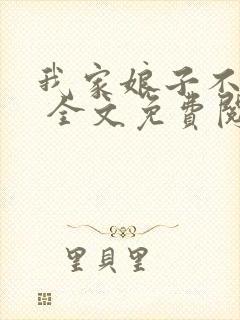 我家娘子不
全文免費閱
里貝里